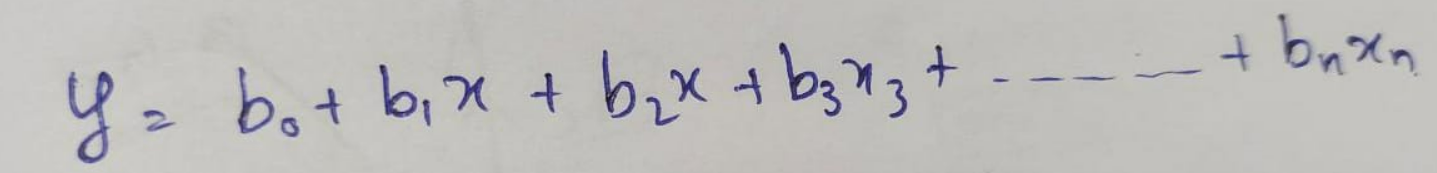 y = b₀ + b₁x + b₂x + b₃x₃ + ------ + bₙxₙ